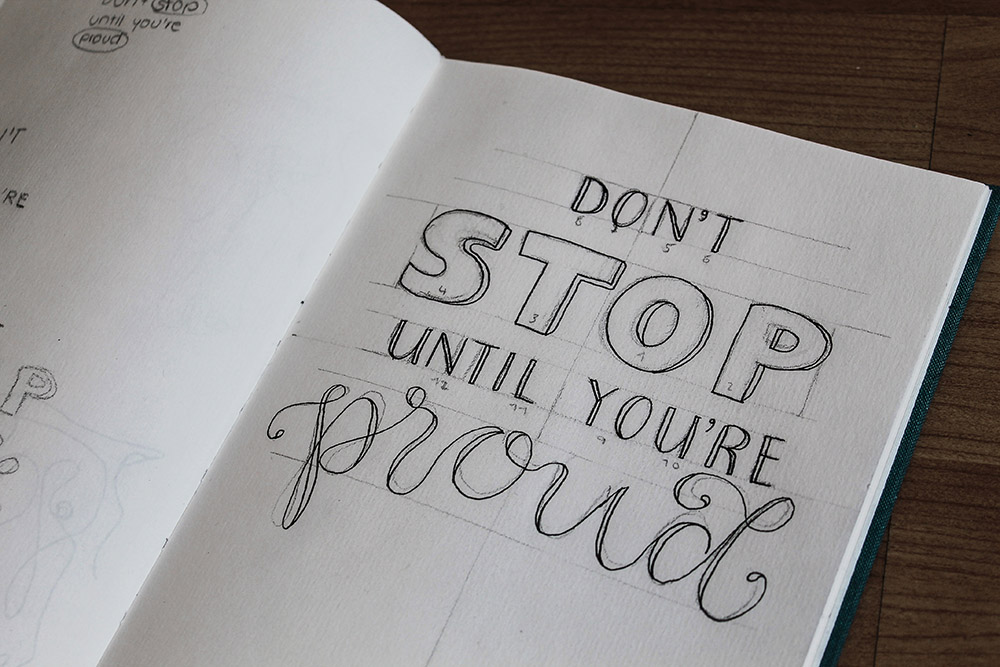 Don't stop
until you're
proud
'T
'RE
P
DON'T
8 5 6
STOP
4 3 1 2
UNTIL YOU'RE
12 11 9 10
proud